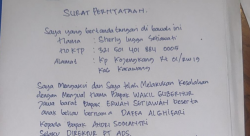 SURAT PERNYATAAN.
Saya yang bertandatangan di bawah ini
Nama : Sherly Ingga Setiawati
No KTP :
Alamat : Kp Kojengkang Rt 01/RW 19
Kab Karawang
Saya Mengakui dan Saya telah Melakukan Kesalahan
dengan Menjual Nama Bapak WAKIL GUBERNUR
Jawa barat Bapak ERWAN SETIAWAN Beserta
anak beliau bernama DAFFA ALGHIFARI
Kepada Bapak ANDRI SOMANTRI
Selaku DIREKTUR PT. ADS.